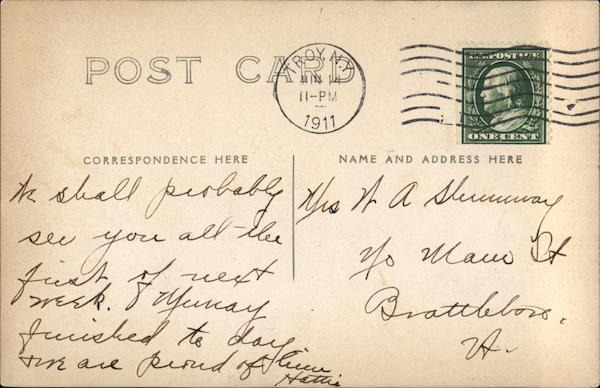 POST CARD
TROY, N.Y.
JUN 14
11-PM
1911
U.S. POSTAGE
ONE CENT
CORRESPONDENCE HERE
NAME AND ADDRESS HERE
We shall probably
see you all the
first of next
week. Murray
finished to day
& we are proud of him
Hattie
Mrs W A Shumway
Main St
Brattleboro,
Vt.